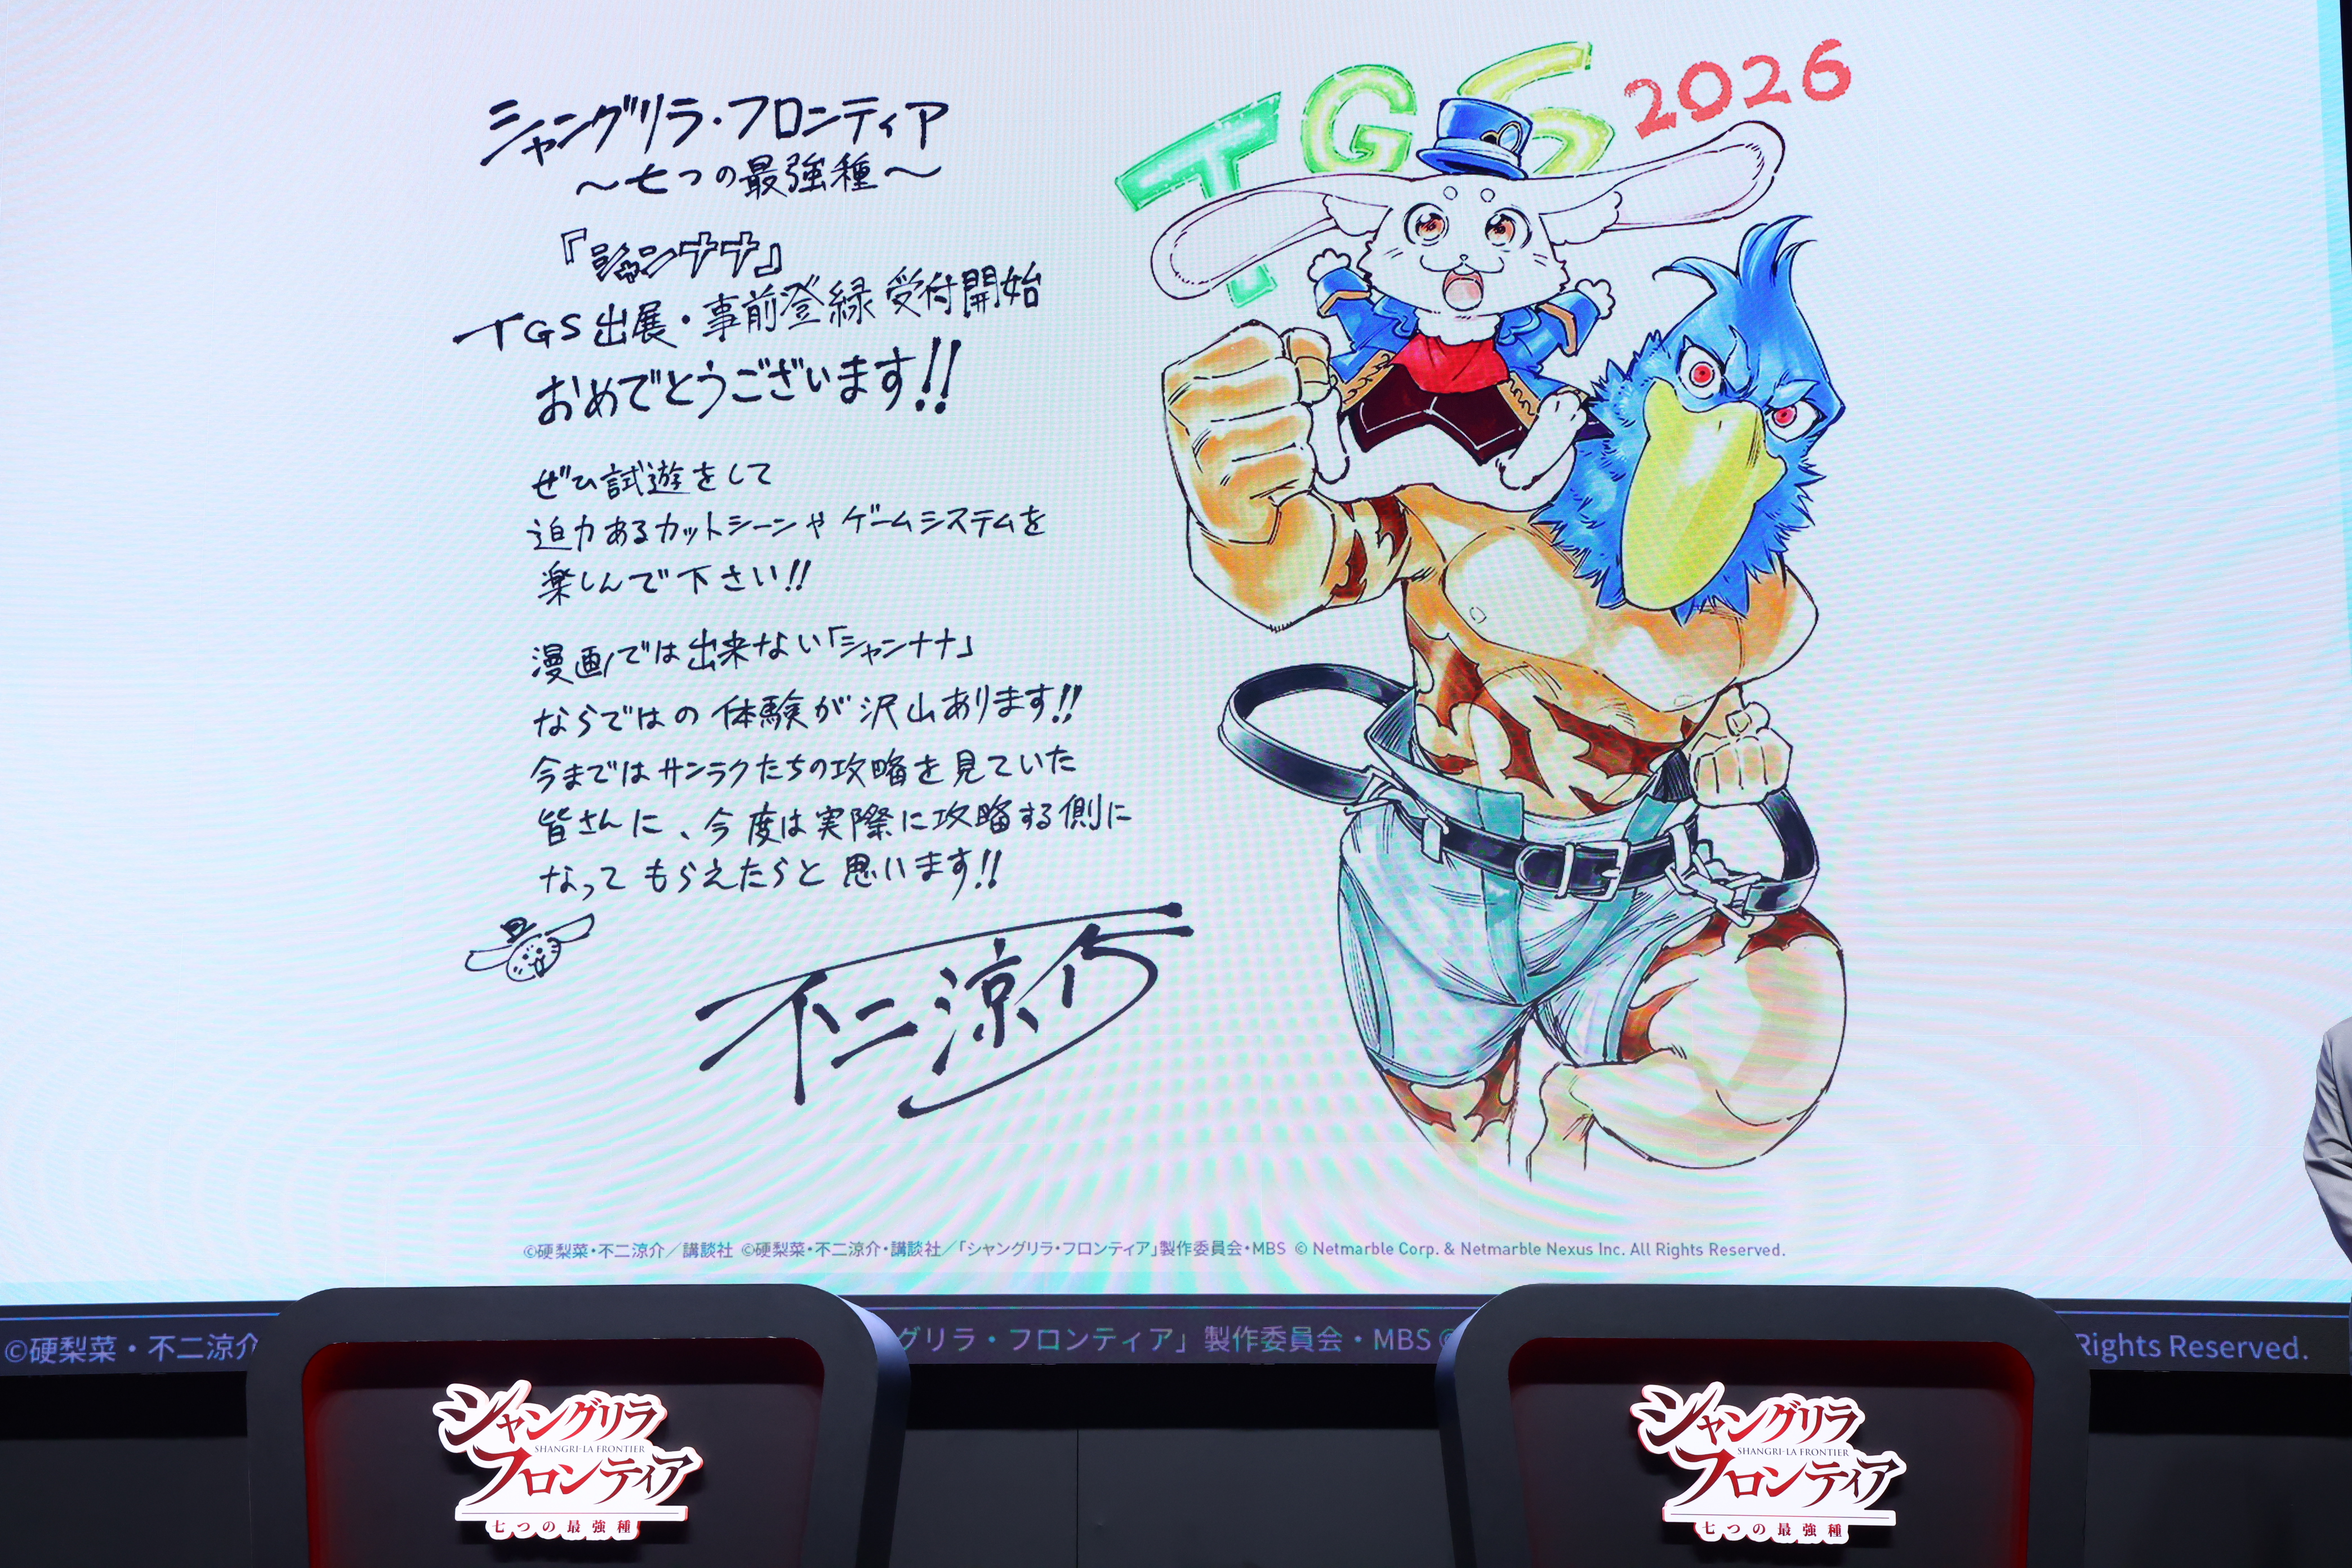 シャングリラ・フロンティア
～七つの最強種～
『シャンナナ』
TGS出展・事前登録 受付開始
おめでとうございます!!
ぜひ試遊をして
迫力あるカットシーンや ゲームシステムを
楽しんで下さい!!
漫画では出来ない「シャンナナ」
ならではの 体験が沢山あります!!
今まではサンラクたちの攻略を見ていた
皆さんに、今度は実際に攻略する側に
なって もらえたらと 思います!!
不二涼介
TGS 2026
©硬梨菜・不二涼介／講談社 ©硬梨菜・不二涼介・講談社／「シャングリラ・フロンティア」製作委員会・MBS © Netmarble Corp. & Netmarble Nexus Inc. All Rights Reserved.
©硬梨菜・不二涼介
グリラ・フロンティア」製作委員会・MBS ©
Rights Reserved.
シャングリラ
SHANGRI-LA FRONTIER
フロンティア
七つの最強種
シャングリラ
SHANGRI-LA FRONTIER
フロンティア
七つの最強種